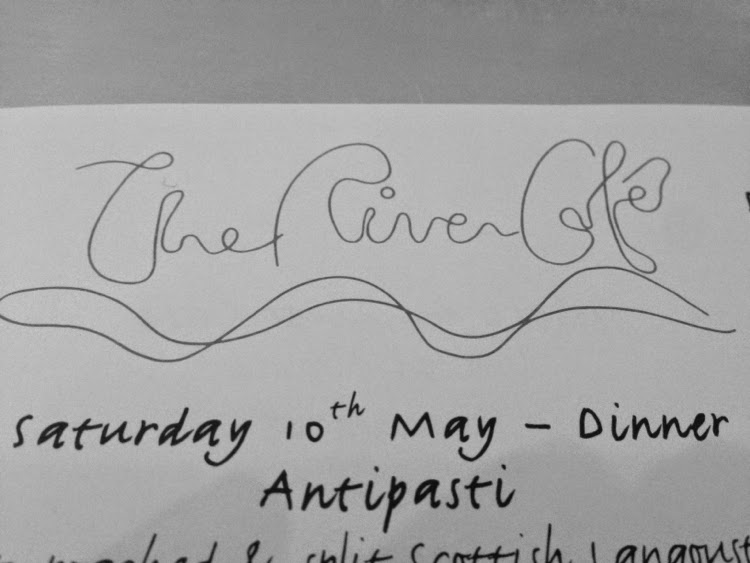 The River Café
Saturday 10th May - Dinner
Antipasti
& split Scottish Langoust